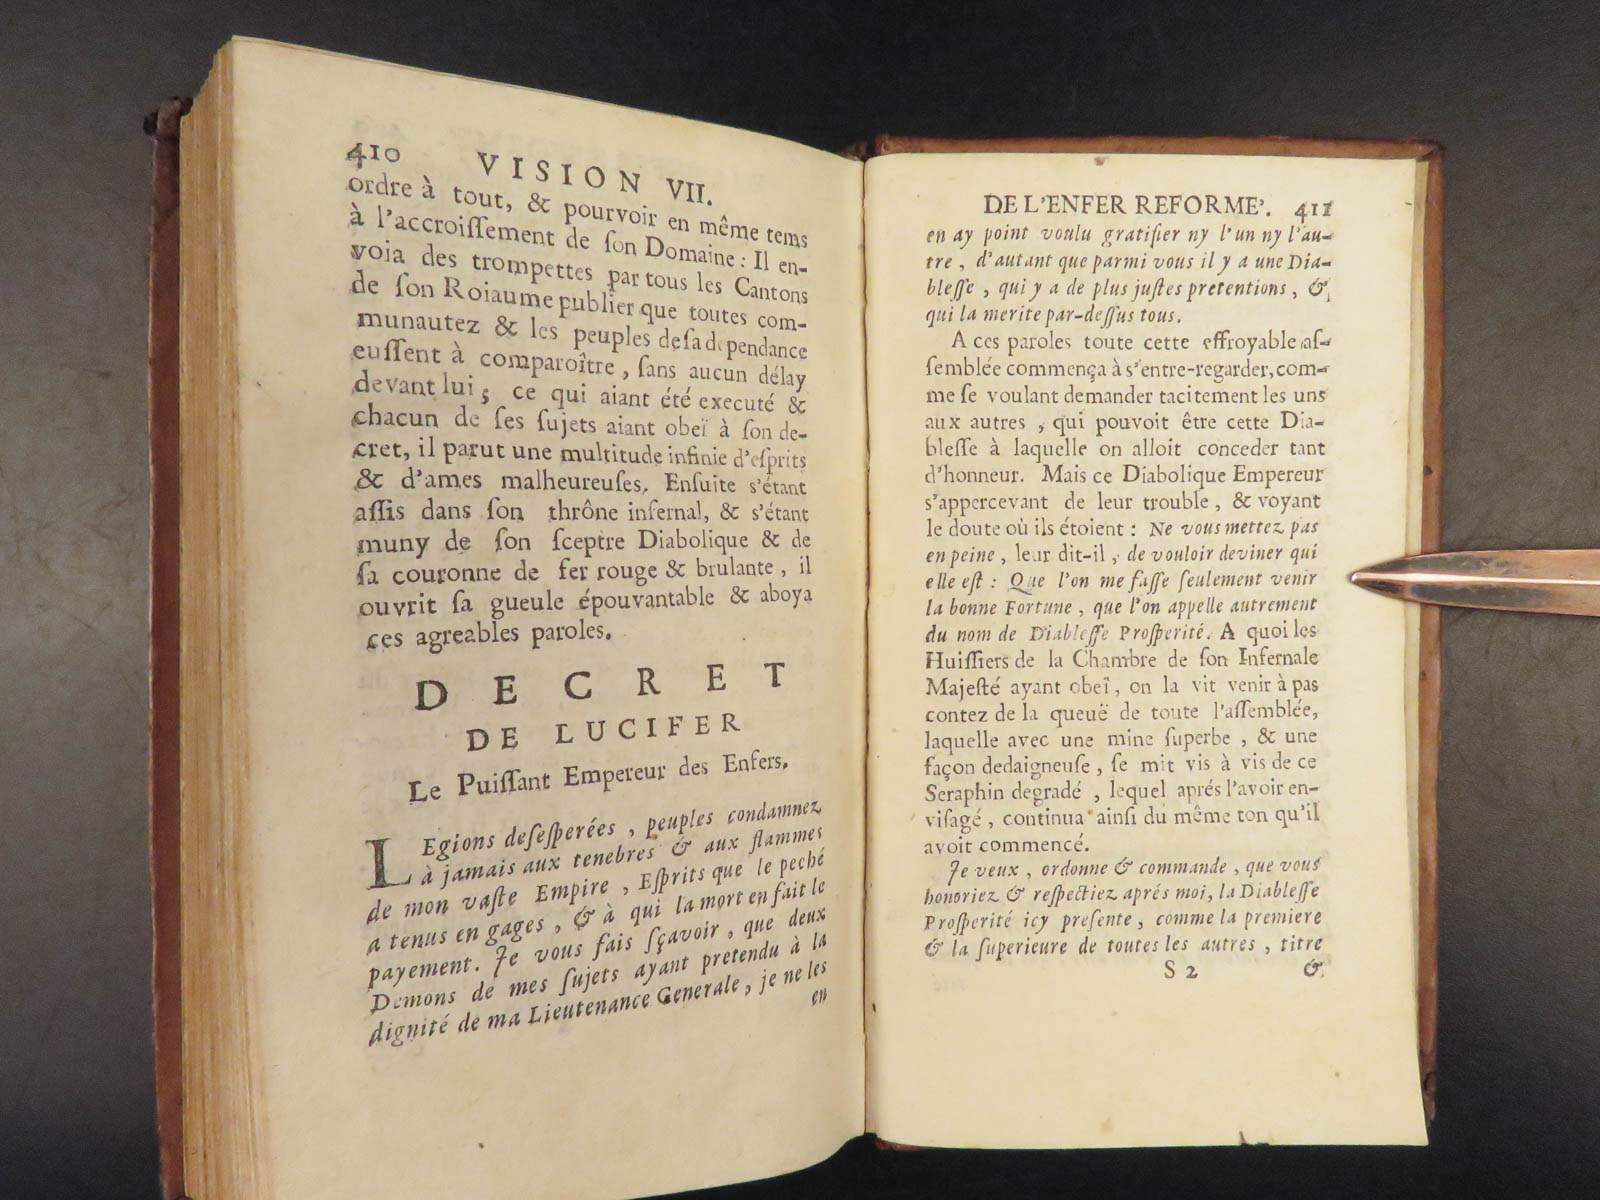 410 VISION VII.
ordre à tout, & pourvoir en même tems
à l'accroiſſement de ſon Domaine : Il en-
voia des trompettes par tous les Cantons
de ſon Roiaume publier que toutes com-
munautez & les peuples de ſa dependance
euſſent à comparoître, ſans aucun délay
devant lui ; ce qui aiant été executé &
chacun de ſes ſujets aiant obeï à ſon de-
cret, il parut une multitude infinie d'eſprits
& d'ames malheureuſes. Enſuite s'étant
aſſis dans ſon thrône infernal, & s'étant
muny de ſon ſceptre Diabolique & de
ſa couronne de fer rouge & brulante, il
ouvrit ſa gueule épouvantable & aboya
ces agreables paroles.
DECRET
DE LUCIFER
Le Puiſſant Empereur des Enfers.
LEgions deſeſperées, peuples condamnez
à jamais aux tenebres & aux flammes
de mon vaſte Empire, Eſprits que le peché
a tenus en gages, & à qui la mort en fait le
payement. Je vous fais ſçavoir, que deux
Demons de mes ſujets ayant pretendu à la
dignité de ma Lieutenance Generale, je ne les
en
DE L'ENFER REFORME'. 411
en ay point voulu gratifier ny l'un ny l'au-
tre, d'autant que parmi vous il y a une Dia-
bleſſe, qui y a de plus juſtes pretentions, &
qui la merite par-deſſus tous.
A ces paroles toute cette effroyable aſ-
ſemblée commença à s'entre-regarder, com-
me ſe voulant demander tacitement les uns
aux autres, qui pouvoit être cette Dia-
bleſſe à laquelle on alloit conceder tant
d'honneur. Mais ce Diabolique Empereur
s'appercevant de leur trouble, & voyant
le doute où ils étoient : Ne vous mettez pas
en peine, leur dit-il, de vouloir deviner qui
elle eſt : Que l'on me faſſe ſeulement venir
la bonne Fortune, que l'on appelle autrement
du nom de Diableſſe Proſperité. A quoi les
Huiſſiers de la Chambre de ſon Infernale
Majeſté ayant obeï, on la vit venir à pas
contez de la queuë de toute l'aſſemblée,
laquelle avec une mine ſuperbe, & une
façon dedaigneuſe, ſe mit vis à vis de ce
Seraphin degradé, lequel aprés l'avoir en-
viſagé, continua ainſi du même ton qu'il
avoit commencé.
Je veux, ordonne & commande, que vous
honoriez & reſpectiez aprés moi, la Diableſſe
Proſperité icy preſente, comme la premiere
& la ſuperieure de toutes les autres, titre
S 2 &